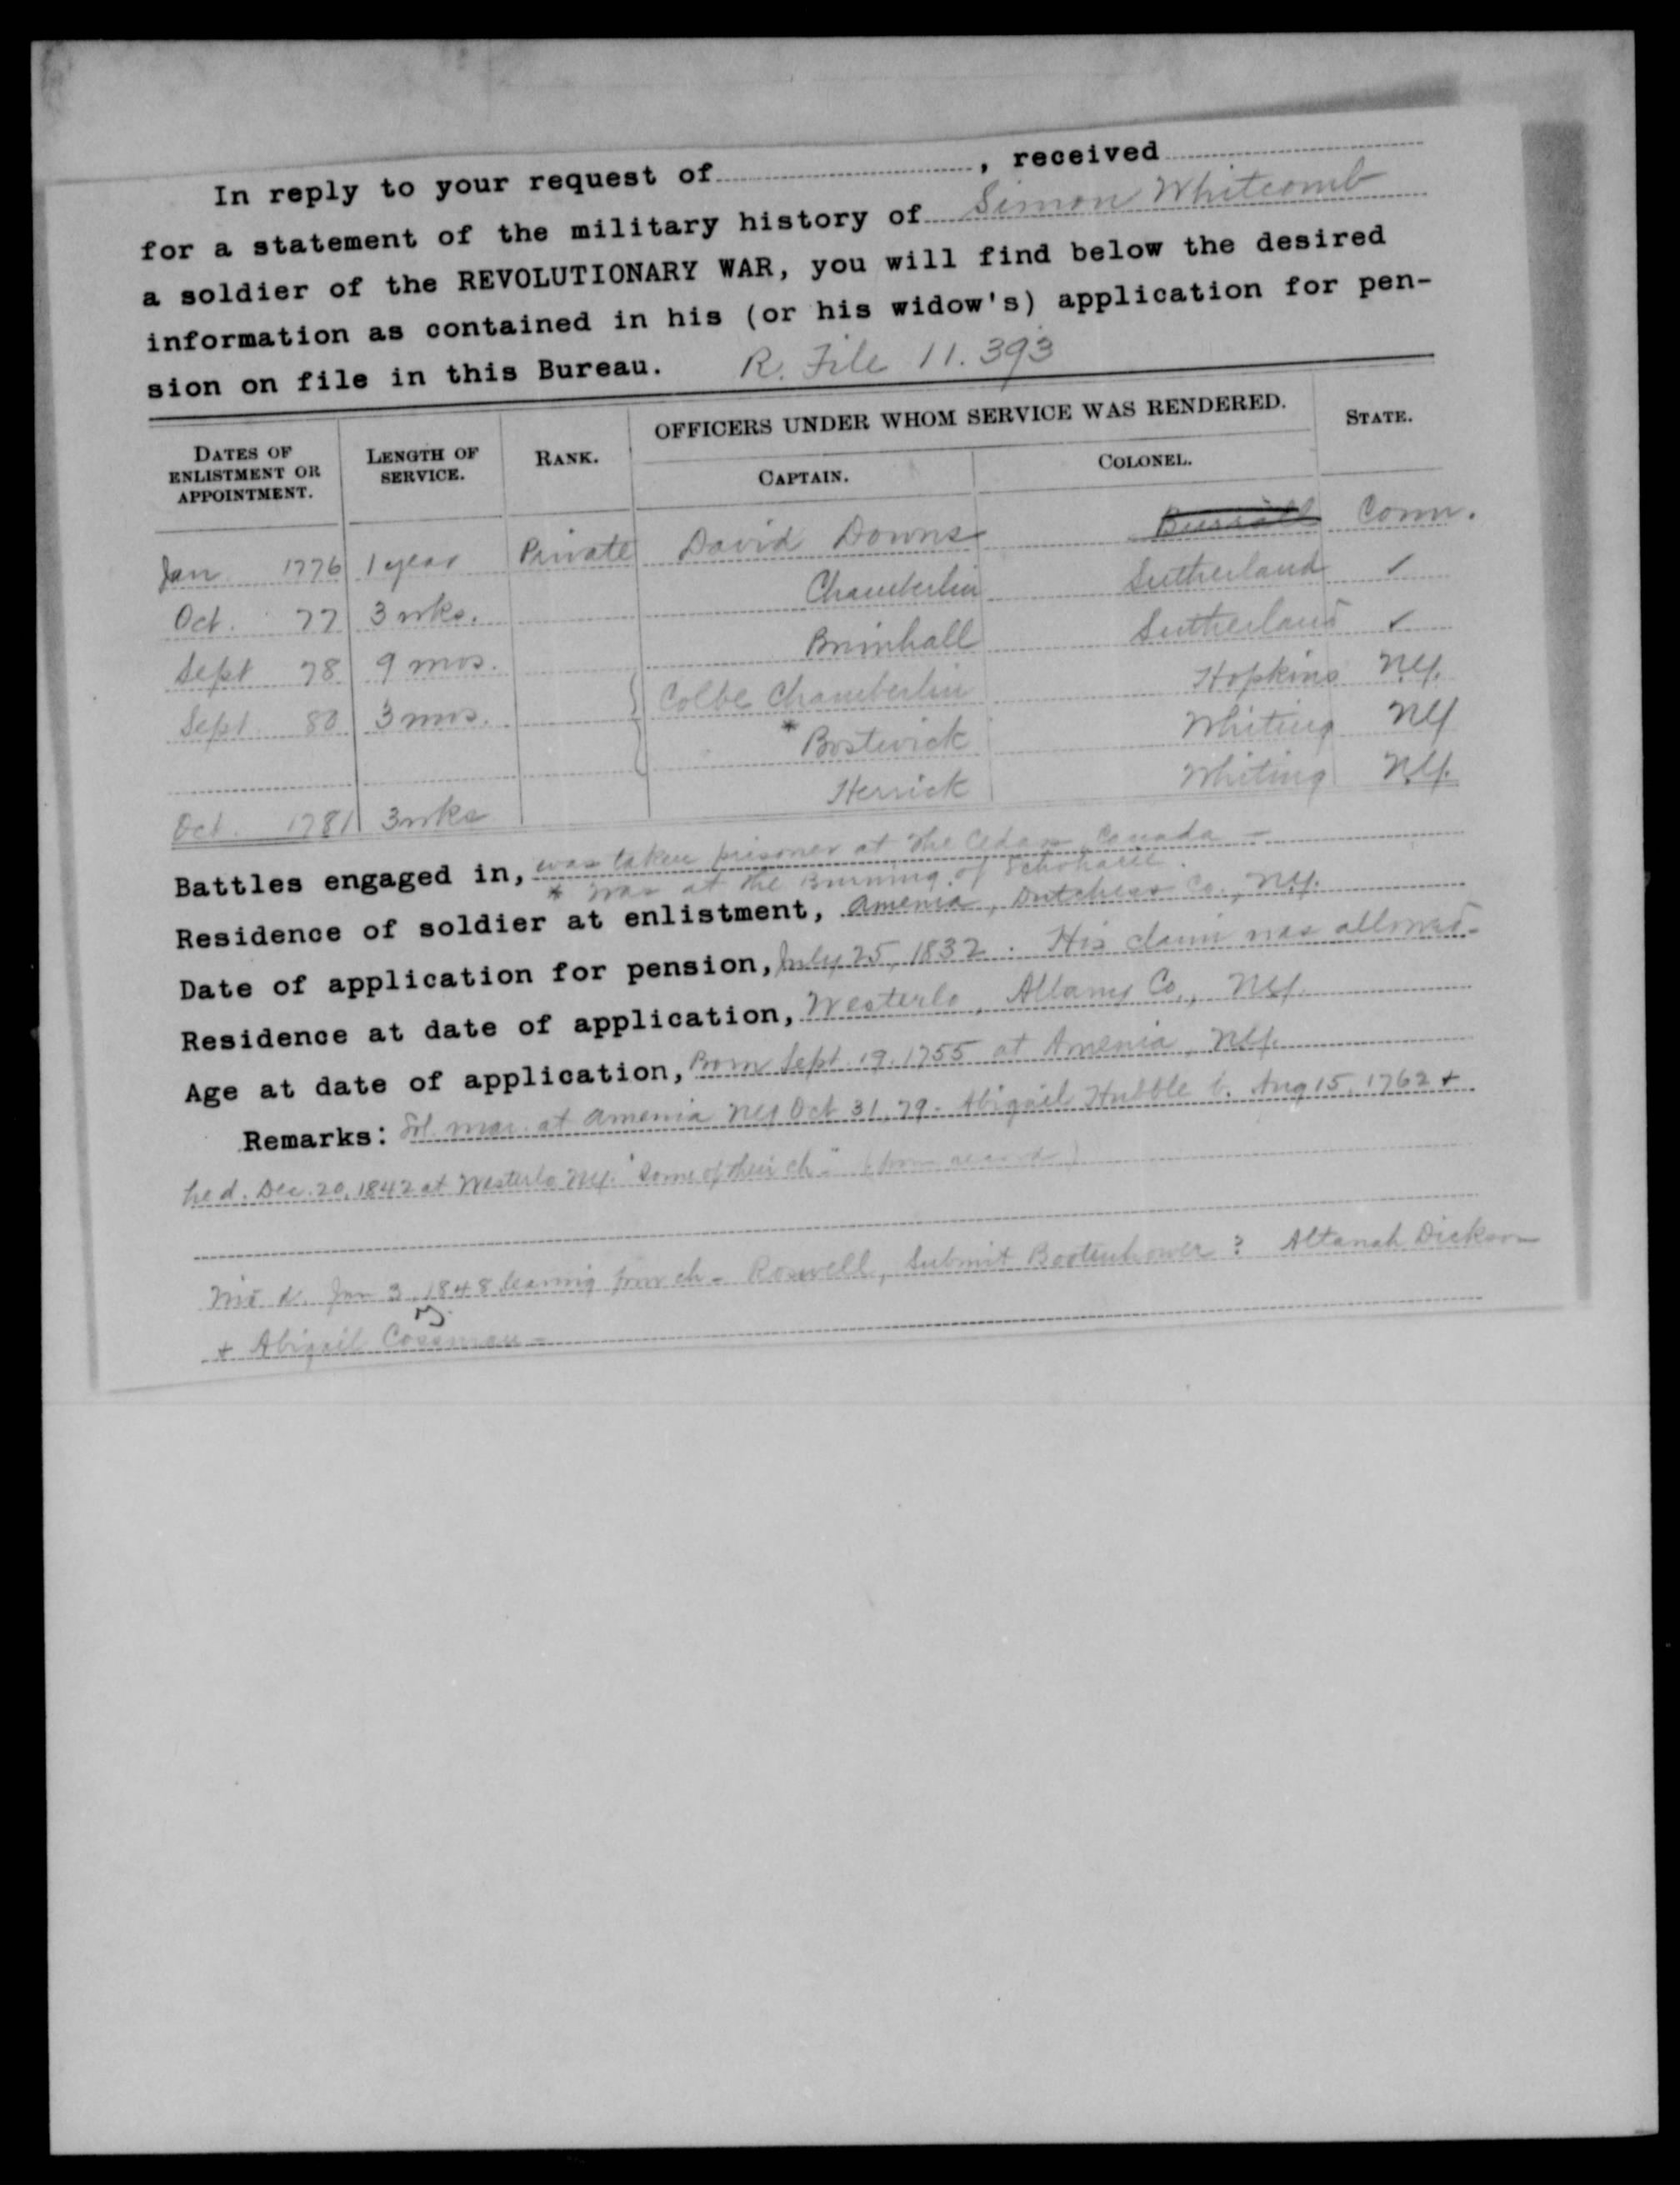 In reply to your request of , received
for a statement of the military history of Simon Whitcomb
a soldier of the REVOLUTIONARY WAR, you will find below the desired
information as contained in his (or his widow's) application for pen-
sion on file in this Bureau. R. File 11.393
DATES OF ENLISTMENT OR APPOINTMENT. LENGTH OF SERVICE. RANK. OFFICERS UNDER WHOM SERVICE WAS RENDERED. STATE.
CAPTAIN. COLONEL.
Jan 1776 1 year Private David Downs Burrall Conn.
Oct. 77 3 wks. Chamberlin Sutherland ✓
Sept 78 9 mos. Brinhall Sutherland ✓
Sept 80 3 mos. Colbe Chamberlin Hopkins N.Y.
* Bostwick Whiting NY
Oct. 1781 3 wks Herrick Whiting N.Y.
Battles engaged in, was taken prisoner at the Cedars Canada -
* was at the Burning of Schoharie.
Residence of soldier at enlistment, Amenia, Dutchess Co., N.Y.
Date of application for pension, July 25, 1832. His claim was allowed.
Residence at date of application, Westerlo, Albany Co., N.Y.
Age at date of application, Born Sept. 19, 1755 at Amenia, N.Y.
Remarks: Sol. mar. at Amenia NY Oct 31, 79 - Abigail Hubble b. Aug 15, 1762 +
he d. Dec. 20, 1842 at Westerlo N.Y. "Some of their ch"
Wid d. Jan 3, 1848 leaving four ch - Roswell, Submit Bootenhower ? Altanah Dickson
+ Abigail Cossman -